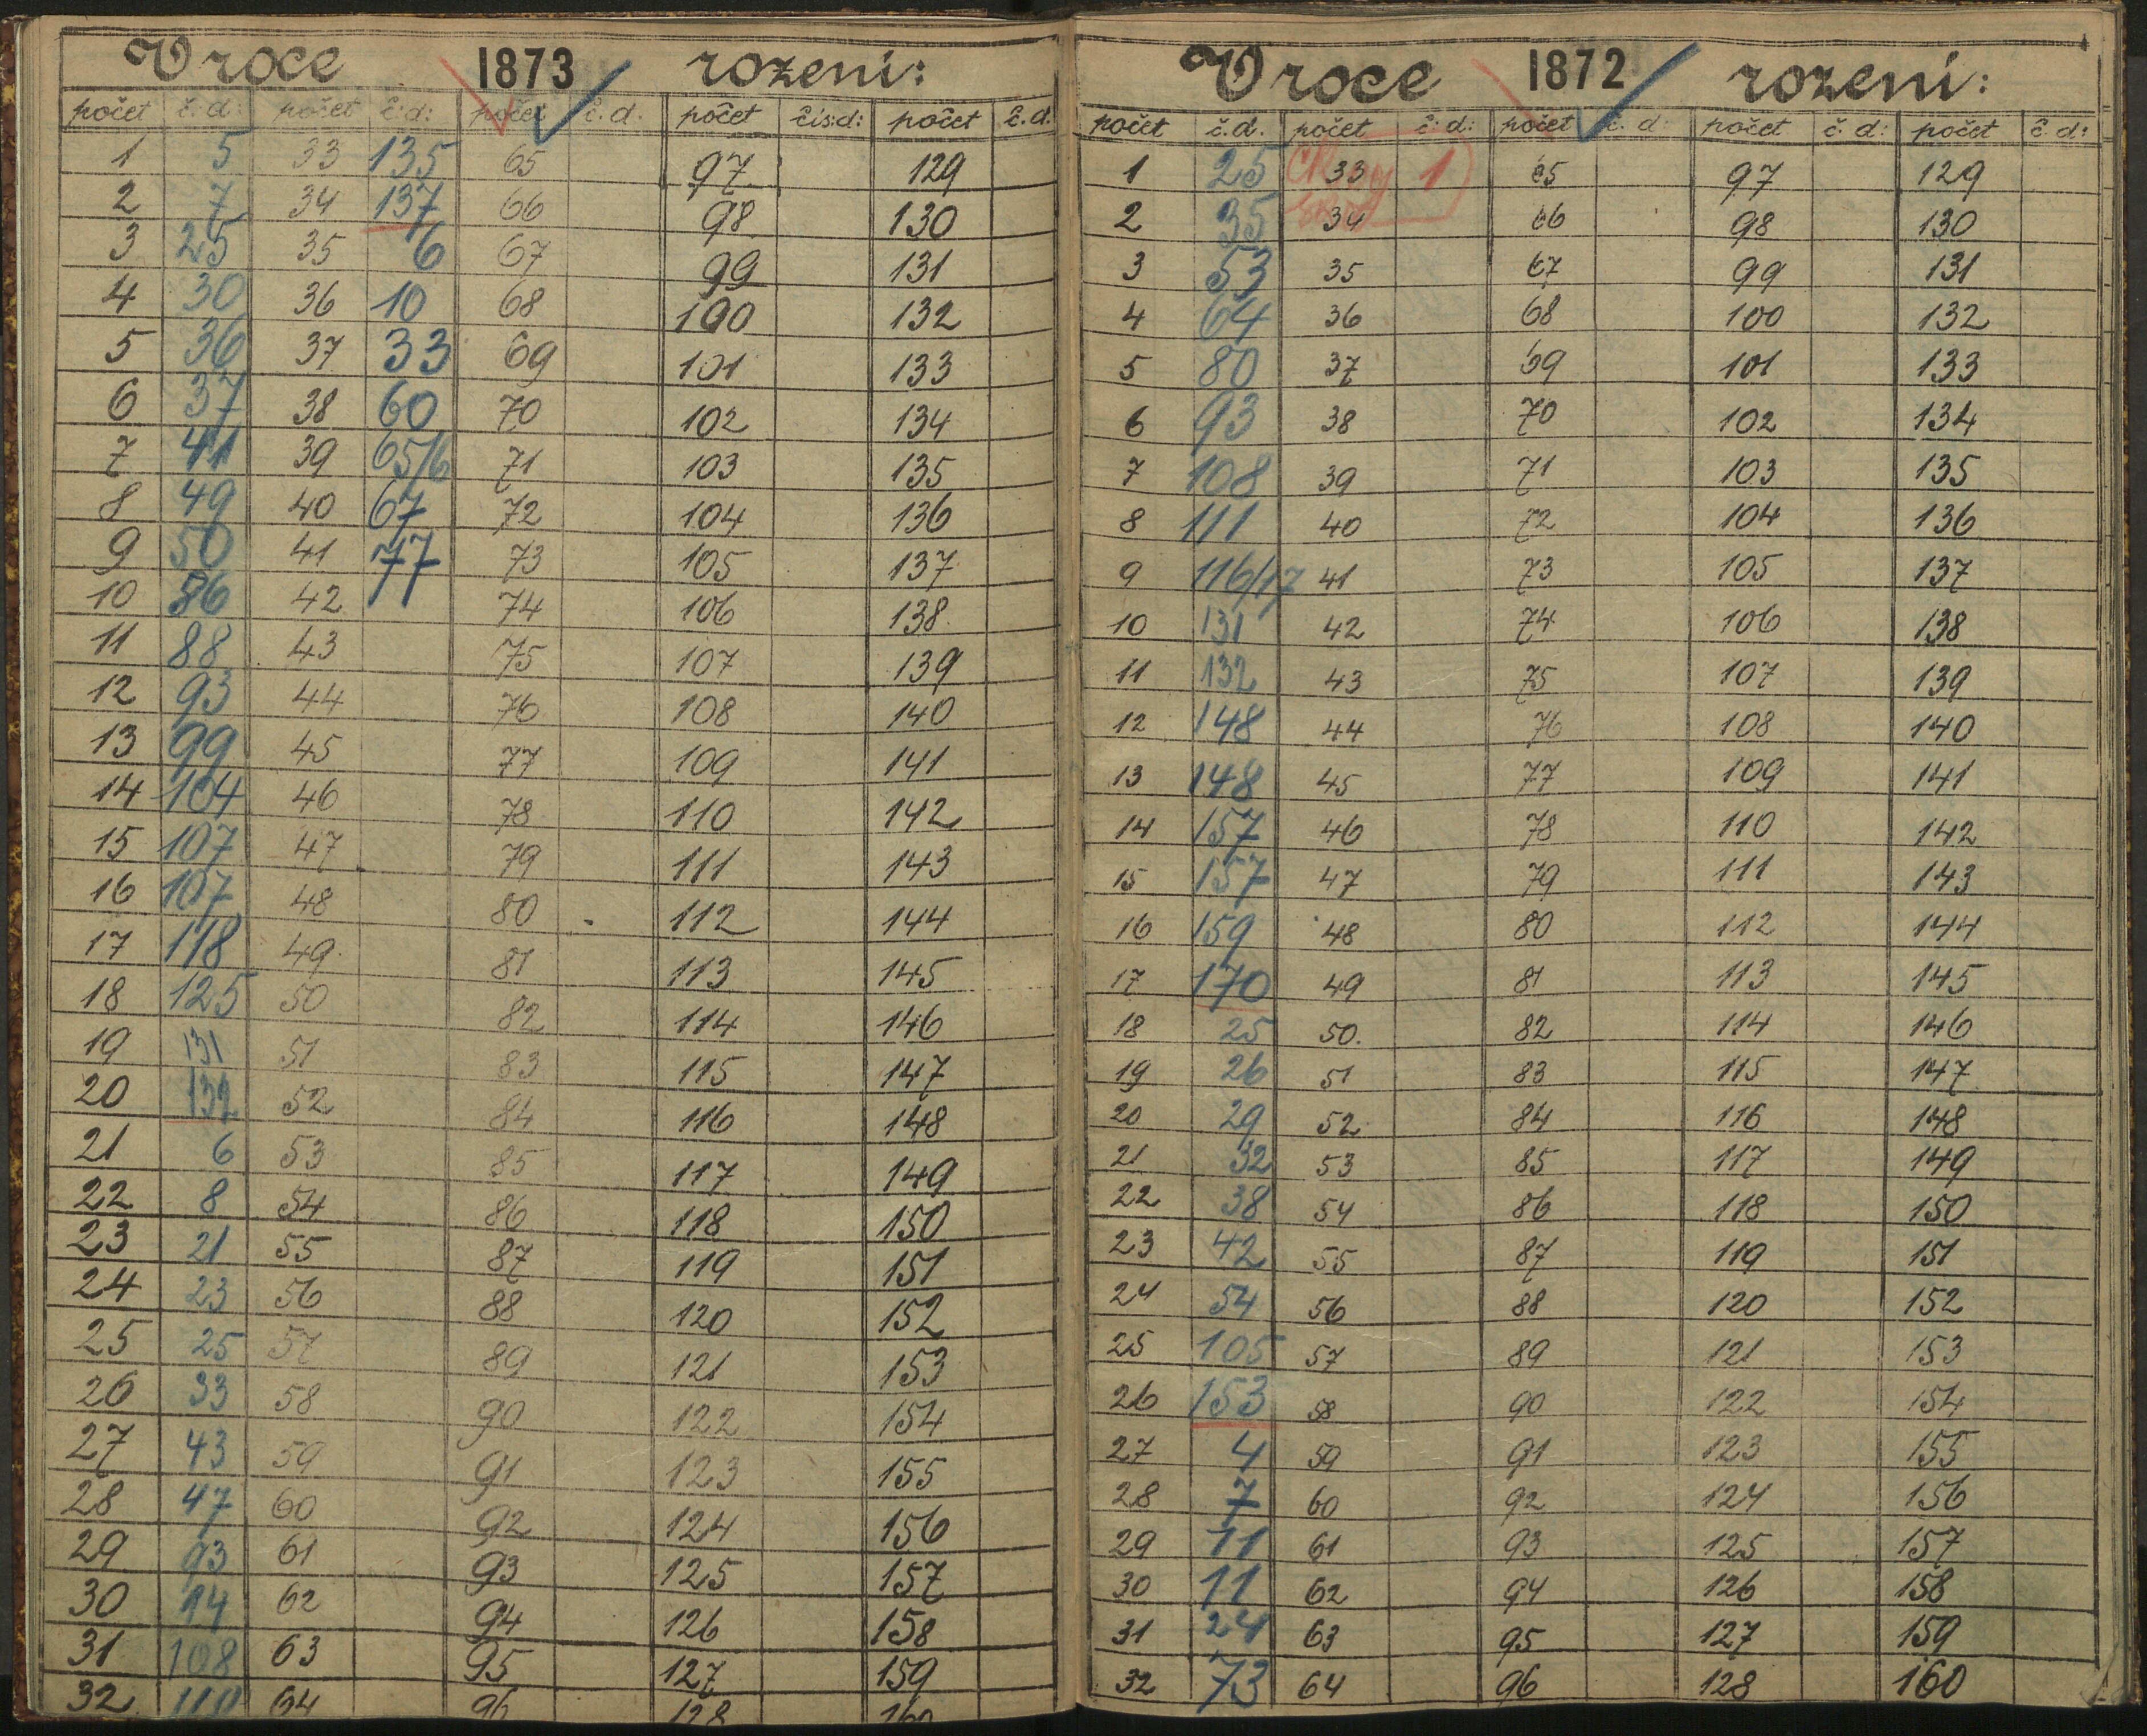 V roce 1873 rozeni:
počet č.d: počet č.d: počet č.d. počet čís:d: počet č.d.
1 5 33 135 65 97 129
2 7 34 137 66 98 130
3 25 35 6 67 99 131
4 30 36 10 68 100 132
5 36 37 33 69 101 133
6 37 38 60 70 102 134
7 41 39 65/6 71 103 135
8 49 40 67 72 104 136
9 50 41 77 73 105 137
10 86 42 74 106 138
11 88 43 75 107 139
12 93 44 76 108 140
13 99 45 77 109 141
14 104 46 78 110 142
15 107 47 79 111 143
16 107 48 80 112 144
17 118 49 81 113 145
18 125 50 82 114 146
19 131 51 83 115 147
20 132 52 84 116 148
21 6 53 85 117 149
22 8 54 86 118 150
23 21 55 87 119 151
24 23 56 88 120 152
25 25 57 89 121 153
26 33 58 90 122 154
27 43 59 91 123 155
28 47 60 92 124 156
29 93 61 93 125 157
30 94 62 94 126 158
31 108 63 95 127 159
32 110 64 96 128 160
V roce 1872 rozeni:
počet č.d. počet č:d: počet č:d: počet č.d: počet č.d:
1 25 33 1 65 97 129
2 35 34 66 98 130
3 53 35 67 99 131
4 64 36 68 100 132
5 80 37 69 101 133
6 93 38 70 102 134
7 108 39 71 103 135
8 111 40 72 104 136
9 116/17 41 73 105 137
10 131 42 74 106 138
11 132 43 75 107 139
12 148 44 76 108 140
13 148 45 77 109 141
14 157 46 78 110 142
15 157 47 79 111 143
16 159 48 80 112 144
17 170 49 81 113 145
18 25 50. 82 114 146
19 26 51 83 115 147
20 29 52 84 116 148
21 32 53 85 117 149
22 38 54 86 118 150
23 42 55 87 119 151
24 54 56 88 120 152
25 105 57 89 121 153
26 153 58 90 122 154
27 4 59 91 123 155
28 7 60 92 124 156
29 11 61 93 125 157
30 11 62 94 126 158
31 24 63 95 127 159
32 73 64 96 128 160